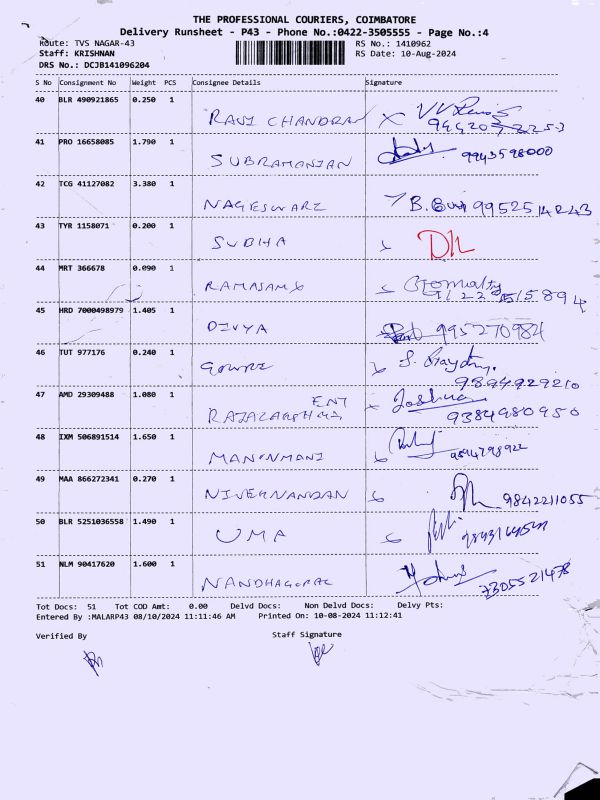 THE PROFESSIONAL COURIERS, COIMBATORE
Delivery Runsheet - P43 - Phone No.:0422-3505555 - Page No.:4
Route: TVS NAGAR-43 RS No.: 1410962
Staff: KRISHNAN RS Date: 10-Aug-2024
DRS No.: DCJB141096204
S No Consignment No Weight PCS Consignee Details Signature
40 BLR 490921865 0.250 1
RAVI CHANDRAN
41 PRO 16658085 1.790 1
SUBRAMANIAN 9943598000
42 TCG 41127082 3.380 1
NAGESWARI
43 TYR 1158071 0.200 1
SUBHA
44 MRT 366678 0.090 1
RAMASAMY
45 HRD 7000498979 1.405 1
DIVYA 995270984
46 TUT 977176 0.240 1
GOWRI
9894929210
47 AMD 29309488 1.080 1
ENT Joshua
RAJALAKSHMI 9384980950
48 IXM 506891514 1.650 1
MANONMANI
49 MAA 866272341 0.270 1
NIVEKNANDAN 9842211055
50 BLR 5251036558 1.490 1
UMA
51 NLM 90417620 1.600 1
NANDHAGOPAL 7305521478
Tot Docs: 51 Tot COD Amt: 0.00 Delvd Docs: Non Delvd Docs: Delvy Pts:
Entered By :MALARP43 08/10/2024 11:11:46 AM Printed On: 10-08-2024 11:12:41
Verified By Staff Signature